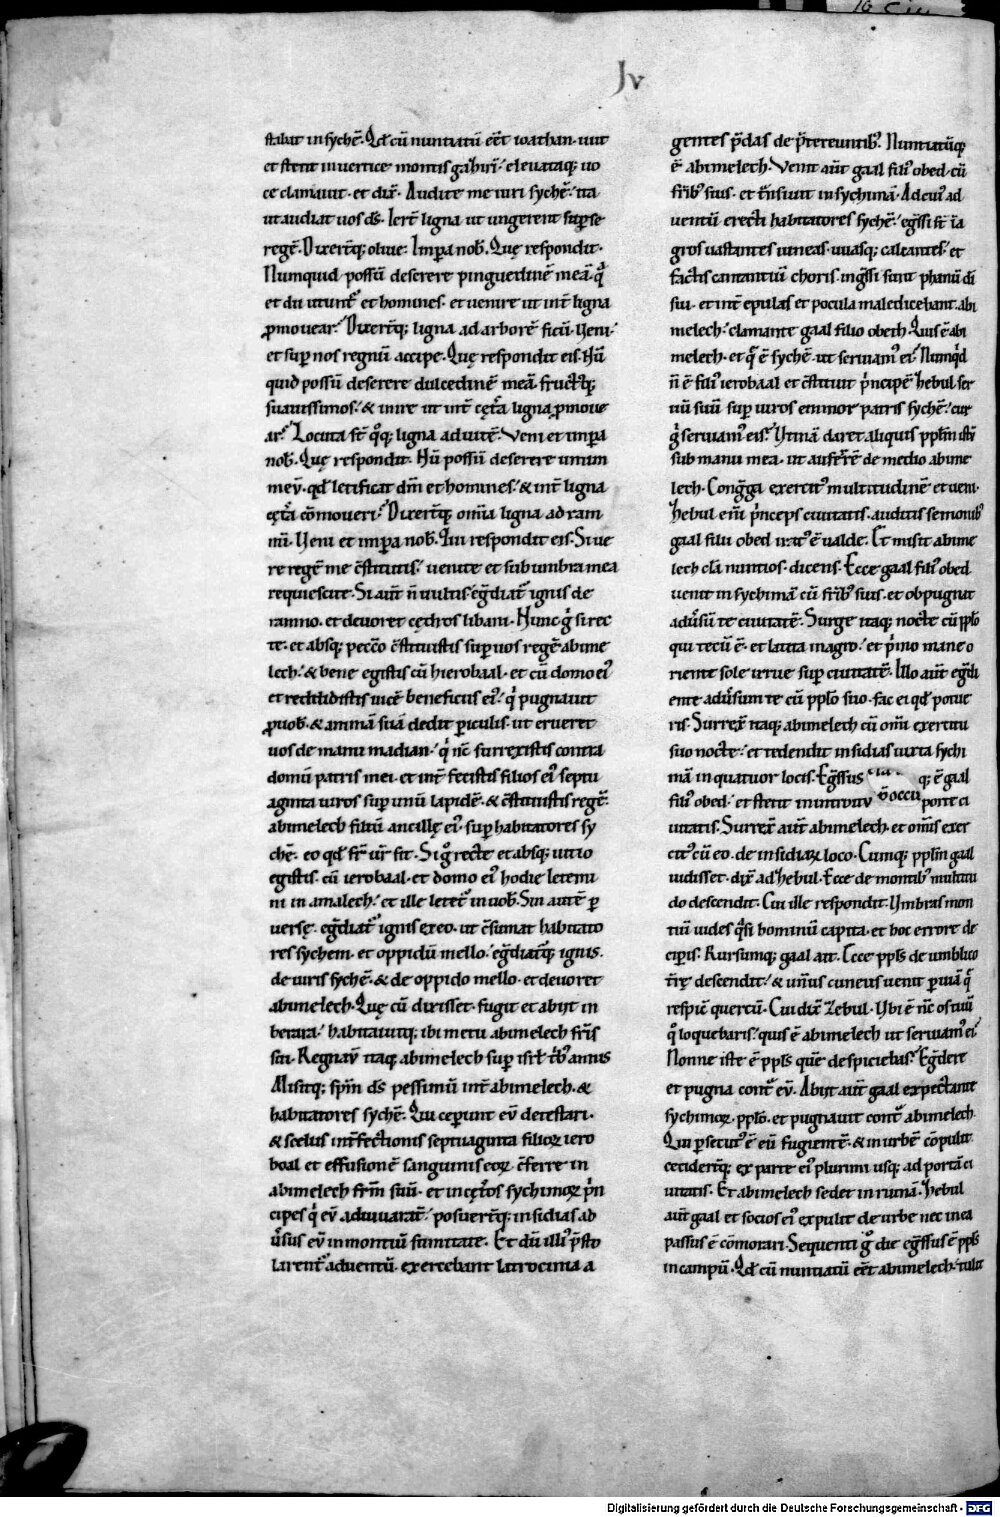 Jv
stabat in sychē. Qd̄ cū nuntiatū eēt ioathan. iuit
et stetit in vertice montis gaꝛirī. eleuataq; uo
ce clamauit. et dix̄. Audite me uiri sychē. ita
ut audiat uos dꝰ. Ierūt ligna ut ungerent sup̄ se
regē. Dixerūtq; oliue. Imp̄a nob̄. Quę respondit.
Numquid possū deserere pinguedinē meā. q̄
et dii utunt᷑ et homines. et uenire ut int̄ ligna
ꝓmouear. Dixerūtq; ligna ad arborē ficū. Ueni.
et sup̄ nos regnū accipe. Quę respondit eis. Nū
quid possū deserere dulcedinē meā. fructusq;
suauissimos. & inire ut int̄ cęt̄a ligna ꝓmoue
ar. Locuta st̄ qͦq; ligna ad uitē. Veni et imp̄a
nob̄. Quę respondit. Nū possū deserere uinum
meū. qd̄ letificat dm̄ et homines. & int̄ ligna
cęt̄a cōmoueri. Dixerūtq; om̄ia ligna ad ram
nū. Ueni et imp̄a nob̄. Qui respondit eis. Si ue
re regē me c̄stituitis. uenite et sub umbra mea
requiescite. Si aūt n̄ uultis. egrediat᷑ ignis de
ramno. et deuoret cędros libani. Nunc ḡ si rec
te. et absq; peccō c̄stituistis sup̄ uos regē abime
lech. & bene egistis cū hierobaal. et cū domo eiꝰ
et reddidistis uicē beneficiis eiꝰ. q̄ pugnauit
ꝓ uob̄. & animā suā dedit periculis. ut erueret
uos de manu madian. q̄ nc̄ surrexistis contra
domū patris mei. et int̄fecistis filios eiꝰ septu
aginta uiros sup̄ unū lapidē. & c̄stituistis regē.
abimelech filiū ancillę eiꝰ. sup̄ habitatores sy
chē. eo qd̄ fr̄ ur̄ sit. Si gͦ recte et absq; uitio
egistis cū ierobaal. et domo eiꝰ hodie letemi
ni in amalech. et ille letet᷑ in uob̄. Sin autē p̄
uersę. egrediat᷑ ignis ex eo. ut c̄sumat habitato
res sychem. et oppidū mello. egrediat᷑q; ignis.
de uiris sychē. & de oppido mello. et deuoret
abimelech. Quę cū dixisset. fugit et abiit in
berara. habitauitq; ibi metu abimelech fr̄is
sui. Regnauit itaq; abimelech sup̄ isrl̄ tribꝰ annis
Misitq; spm̄ dꝰ pessimū int̄ abimelech. &
habitatores sychē. Qui cęperunt eū detestari.
& scelus int̄fectionis septuaginta filioꝝ iero
boal et effusionē sanguinis eoꝝ. c̄ferre in
abimelech fr̄m suū. et in cęt̄os sychimoꝝ p̄n
cipes q̄ eū adiuuarāt. posuerūtq; insidias ad
ūsus eū in montiū sumitate. Et dū illiꝰ p̄sto
larent᷑ aduentū. exercebant latrocinia a
gentes p̄das de p̄tereuntibꝰ. Nuntiatūq;
ē abimelech. Venit aūt gaal filiꝰ obed. cū
fr̄ibꝰ suis. et tn̄siuit in sychimā. Ad cuiꝰ ad
uentū erecti habitatores sychē. egressi st̄ in a
gros uastantes uineas. uuasq; calcantes. et
factis cantantiū choris. ingressi sunt phanū di
sui. et int̄ epulas et pocula maledicebant. abi
melech. clamante gaal filio obeth. Quis ē abi
melech. et q̄ ē sychē. ut seruiamꝰ ei. Numqͥd
n̄ ē filiꝰ ierobaal et c̄stituit p̄ncipē hebul ser
uū suū sup̄ uiros emmor patris sychē. cur
ḡ seruiamꝰ eis. Utinā daret aliquis pplm̄ istū
sub manu mea. ut auferrē de medio abime
lech. Congrega exercitꝰ multitudinē et ueni.
Hebul eni p̄nceps ciuitatis. auditis sermonibꝰ
gaal filii obed iratꝰ ē ualde. Et misit abime
lech clā nuntios. dicens. Ecce gaal filiꝰ obed
uenit in sychimā cū fr̄ibꝰ suis. et obpugnat
adūsū te ciuitatē. Surge itaq; nocte cū pplo
qui tecū ē. et latita in agro. et p̄mo mane o
riente sole irrue sup̄ ciuitatē. Illo aūt egredi
ente adūsum te cū pplo suo. fac ei qd̄ potue
ris. Surrex̄ itaq; abimelech cū om̄i exercitu
suo nocte. et tetendit insidias iuxta sychi
mā in quatuor locis. Egressus q; ē gaal
filiꝰ obed. et stetit in introitu porte ci
uitatis. Surrex̄ aūt abimelech. et om̄is exer
citꝰ cū eo. de insidiaꝝ loco. Cumq; pplm̄ gaal
uidisset. dix̄ ad hebul. Ecce de montibꝰ multitu
do descendit. Cui ille respondit. Umbras mon
tiū uides q̄si hominū capita. et hoc errore de
ciperis. Rursumq; gaal ait. Ecce ppls̄ de umblico
tr̄ę descendit. & unus cuneus uenit p̄ uiā q̄
respic̄ quercū. Cui dix̄ Zebul. Ubi ē nc̄ os tuū
q̄ loquebaris. quis ē abimelech ut seruiamꝰ ei.
Nonne iste ē ppls̄ quē despiciebas. Egredere
et pugna contͣ eū. Abiit aūt gaal expectante
sychimoꝝ. pplo. et pugnauit contͣ abimelech.
Qui p̄secutꝰ ē eū fugientē. & in urbē cōpulit
cecideruntq; ex parte eiꝰ plurimi usq; ad portā ci
uitatis. Et abimelech sedet in rumā. Hebul
aūt gaal et socios eiꝰ expulit de urbe nec in ea
passus ē cōmorari. Sequenti gͦ die egressus ē ppls̄
in campū. Qd̄ cū nuntiatū eēt abimelech. tulit
Digitalisierung gefördert durch die Deutsche Forschungsgemeinschaft - DFG